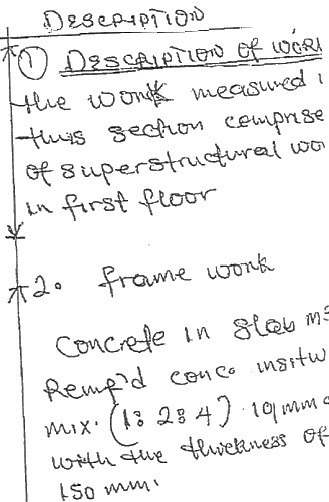 DESCRIPTION
① DESCRIPTION OF WORK
the work measured i
this section comprise
of superstructural wo
in first floor
2. frame work
Concrete in slab m3
Remf'd conc. insitu
mix. (1:2:4) 19mm
with the thickness of
150 mm.